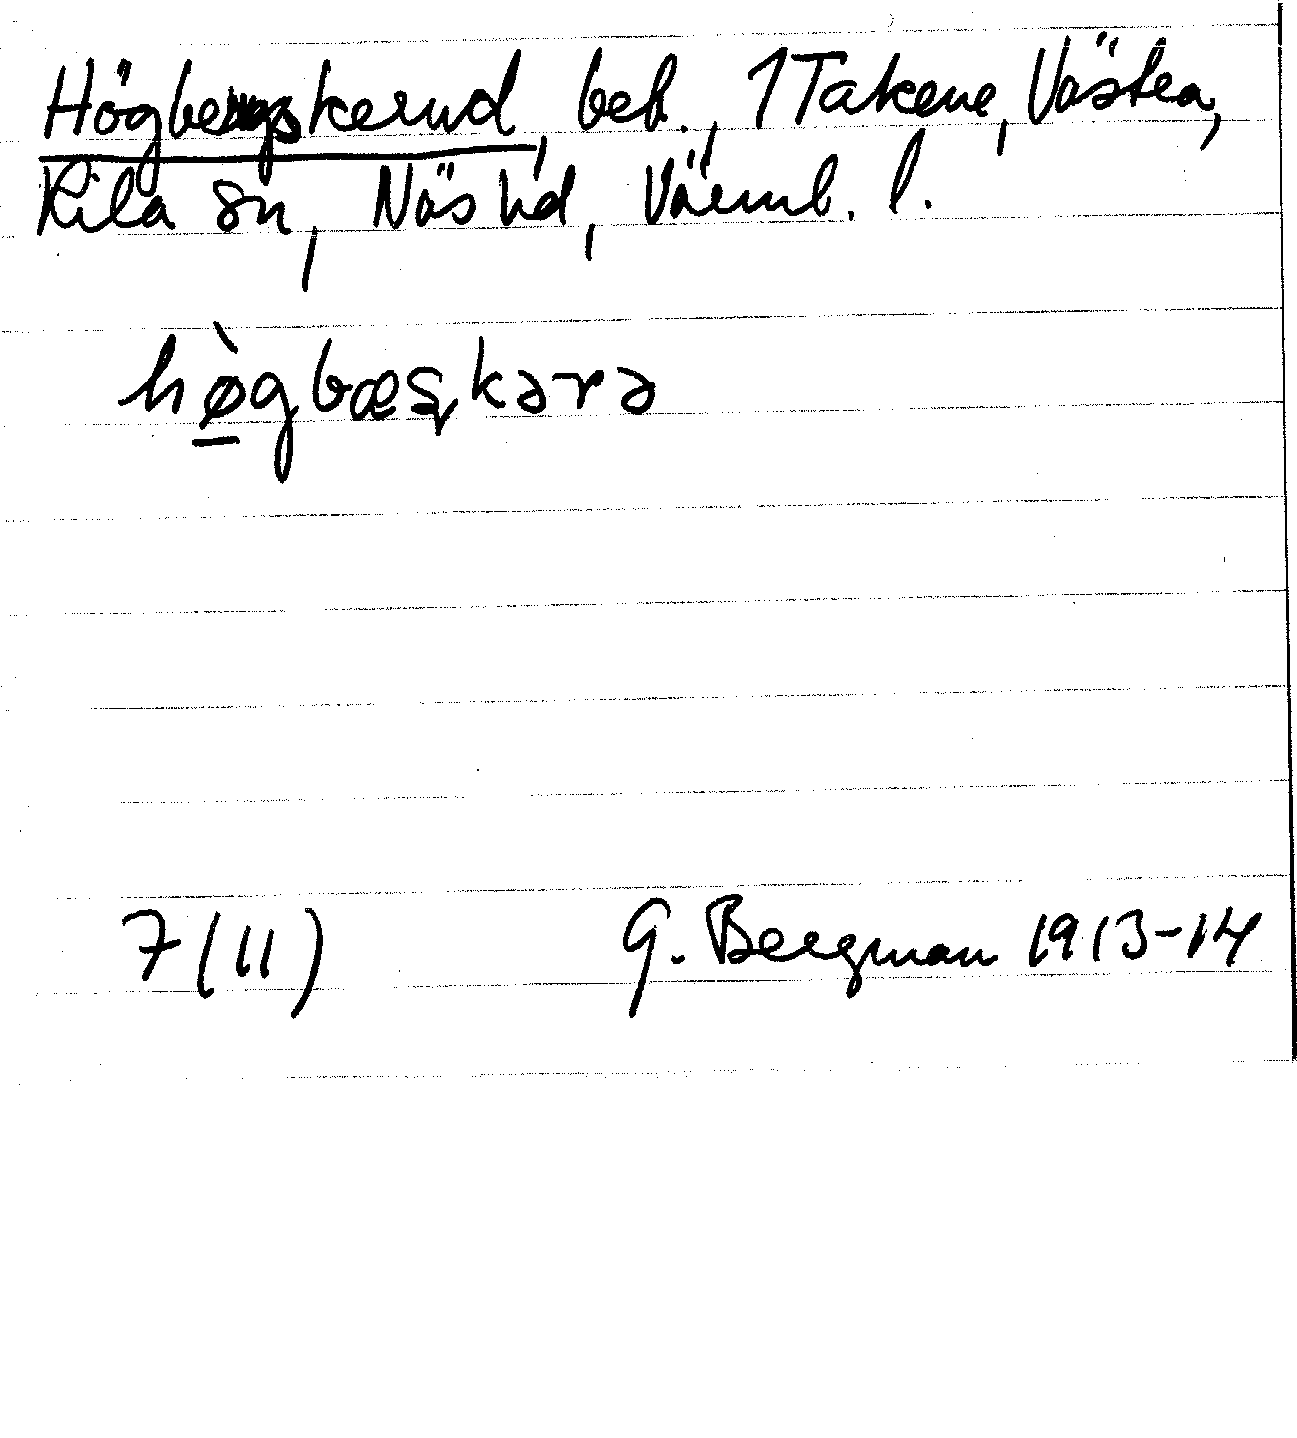 Högbergskerud, beb., 1 Takene, Västra,
Kila sn, Näs hd, Värml. l.
hø̠̀gbæȿkərə
7(11) G. Bergman 1913-14